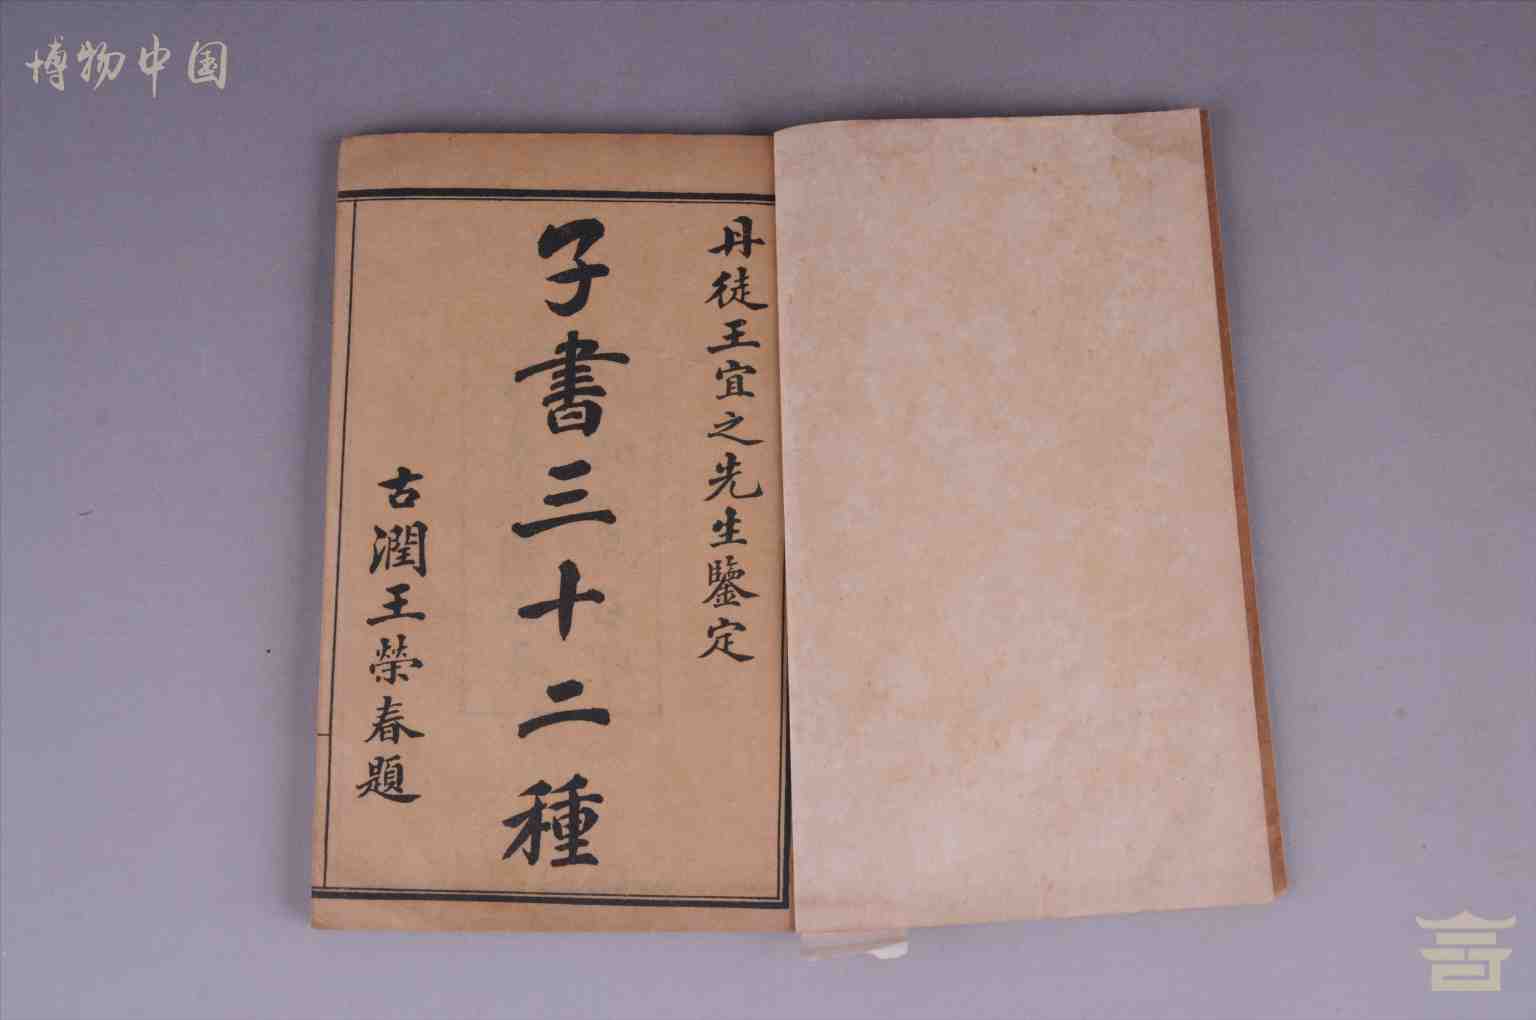 博物中国
丹徒王宜之先生鑒定
子書三十二種
古潤王榮春題